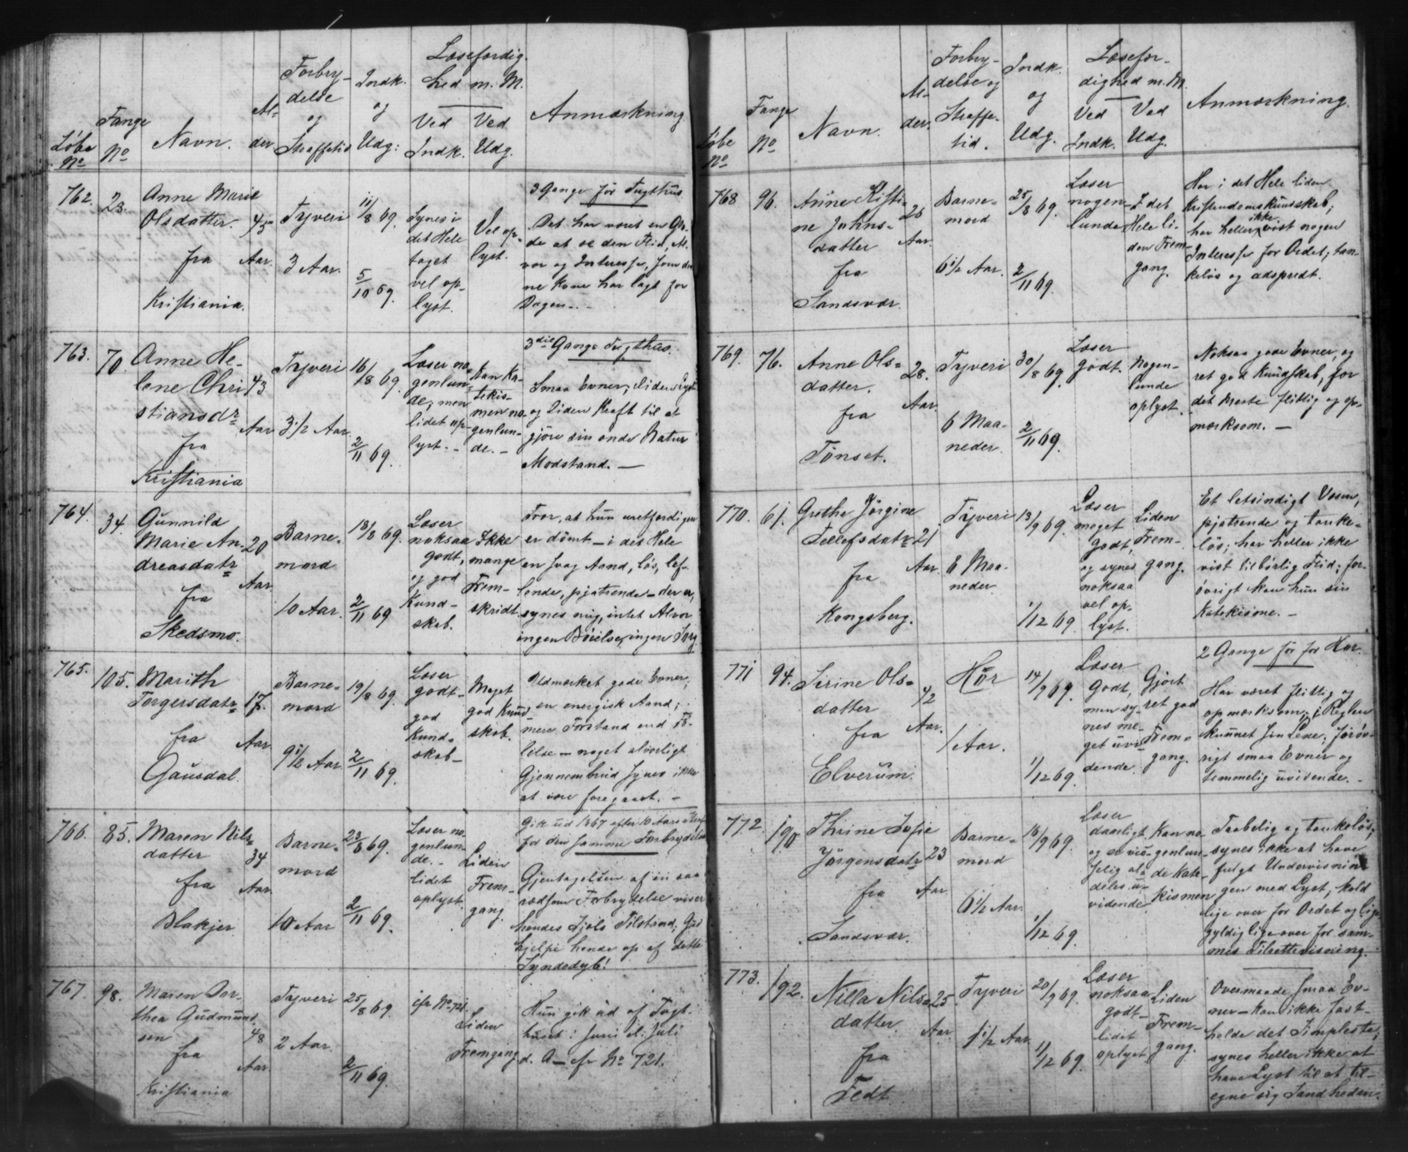 Løbe No
Fange No
Navn.
Alder.
Forbrydelse og Straffetid
Indk. og Udg:
Læsefærdighed m. M.
Ved Indk.
Ved Udg.
Anmærkning
762.
23.
Anne Marie
Olsdatter.
fra
Kristiania.
45
Aar.
Tyveri
3 Aar.
11/8 69.
5/10 69.
Synes i
det Hele
taget
vel op-
lyst.
Vel op-
lyst.
3 Gange før Tugthus.
Det har været en Glæ-
de at se den Flid, Al-
vor og Interesse, som den-
ne Kone har lagt for
Dagen. -
763.
70
Anne He-
lene Chri
stiansdr
fra
Kristiania
43
Aar
Tyveri
3 1/2 Aar
16/8 69.
2/11 69.
Læser no-
genlun-
de, men
lidet op-
lyst. -
Kan Ka-
tekis-
men no-
genlun-
de. -
3die Gange Tugthus.
Smaa Evner, liden Lyst
og liden Kraft til at
gjøre sin onde Natur
Modstand. -
764.
34.
Gunnild
Marie An-
dreasdatr
fra
Skedsmo.
20
Aar
Barne-
mord
10 Aar.
18/8 69.
2/11 69
Læser
noksaa
godt,
og god
Kund-
skab.
Ikke
mange
Frem-
skridt.
Tror, at hun uretfærdigen
er dømt - i det Hele
en svag Aand, løs, lef-
lende, pjattende - der er,
synes mig, intet Alvor
ingen Bøielse, ingen Sorg
765.
105.
Marith
Torgersdatr
fra
Gausdal.
17.
Aar
Barne-
mord
9 1/2 Aar
19/8 69.
2/11 69.
Læser
godt.
god
Kund-
skab -
Meget
god Kund-
skab.
Udmærket gode Evner,
en energisk Aand;
mere Forstand end Fø-
lelse - noget alvorligt
Gjennembrud synes ikke
at være foregaaet. -
766.
85.
Maren Nils
datter
fra
Blakjer
34
Aar.
Barne-
mord
10 Aar
23/8 69.
2/11 69.
Læser no-
genlun-
de. -
lidet
oplyst.
Liden
Frem-
gang.
Gik ud 1867 efter 10 Aars Straf
for den samme Forbrydelse
Gjentagelsen af en saa
rædsom Forbrydelse viser
hendes Sjæls Tilstand; Gud
hjelpe hende op af dette
Syndedyb!
767.
98.
Maren Dor-
thea Gudmund
sen
fra
Kristiania
48
Aar.
Tyveri
2 Aar.
25/8 69.
2/11 69.
cfr No 721.
Liden
Fremgang
Hun gik ud af Tugt-
huset i Juni el. Juli
d. A - cfr No 721.
Løbe No
Fange No
Navn.
Alder.
Forbrydelse og Straffetid.
Indk. og Udg.
Læsefærdighed m. M.
Ved Indk.
Ved Udg.
Anmærkning.
768
96.
Anne Kisti-
ne Johns-
datter
fra
Sandsvær.
26
Aar.
Barne-
mord
6 1/2 Aar.
25/8 69.
2/11 69.
Læser
nogen-
lunde
I det
Hele li-
den Frem-
gang.
Har i det Hele liden
Kristendomskundskab;
har heller ikke vist nogen
Interesse for Ordet; tan-
keløs og adspredt.
769.
76.
Anne Ols-
datter.
fra
Tønset.
28.
Aar.
Tyveri
6 Maa-
neder.
30/8 69.
2/11 69.
Læser
godt,
Nogen-
lunde
oplyst.
Noksaa gode Evner, og
ret god Kundskab, for
det meste flittig og op-
mærksom. -
770.
61.
Grethe Jørgine
Tellefsdatr
fra
Kongsberg.
21
Aar
Tyveri
8 Maa-
neder
13/9 69.
1/12 69
Læser
meget
godt,
og synes
noksaa
vel op-
lyst.
Liden
Frem-
gang.
Et letsindigt Væsen,
pjattende og tanke-
løs; har heller ikke
vist tilbørlig Flid; for-
øvrigt kan hun sin
Katekisme. -
771
94.
Serine Ols-
datter
fra
Elverum.
42
Aar.
Hor
1 Aar.
14/9 69.
1/12 69.
Læser
godt,
men sy-
nes me-
get uvi-
dende.
Gjort
ret god
Frem-
gang.
2 Gange før for Hor.
Har været flittig og
opmærksom; i Reglen
kunnet sin Lexe, forøv-
rigt smaa Evner og
temmelig uvidende. -
772.
190
Thrine Sofie
Jørgensdatr
fra
Sandsvær.
23
Aar
Barne-
mord
6 1/2 Aar.
18/9 69.
1/12 69.
Læser
daarligt,
og er
deles u-
vidende.
Kan no-
genlun-
de Kate-
kismen
Taabelig og tankeløs,
synes ikke at have
fulgt Undervisnin-
gen med Lyst, kold
lige over for Ordet og lige
gyldig lige over for sam-
mes Tilrettevisning.
773.
192.
Nilla Nils-
datter.
fra
Fedt
25.
Aar
Tyveri
1 1/2 Aar.
20/9 69.
1/12 69.
Læser
noksaa
godt -
lidet
oplyst
Liden
Frem-
gang.
Overmaade smaa Ev-
ner - kan ikke fast-
holde det Simpleste;
synes heller ikke at
have Lyst til at til-
egne sig Sandheden.